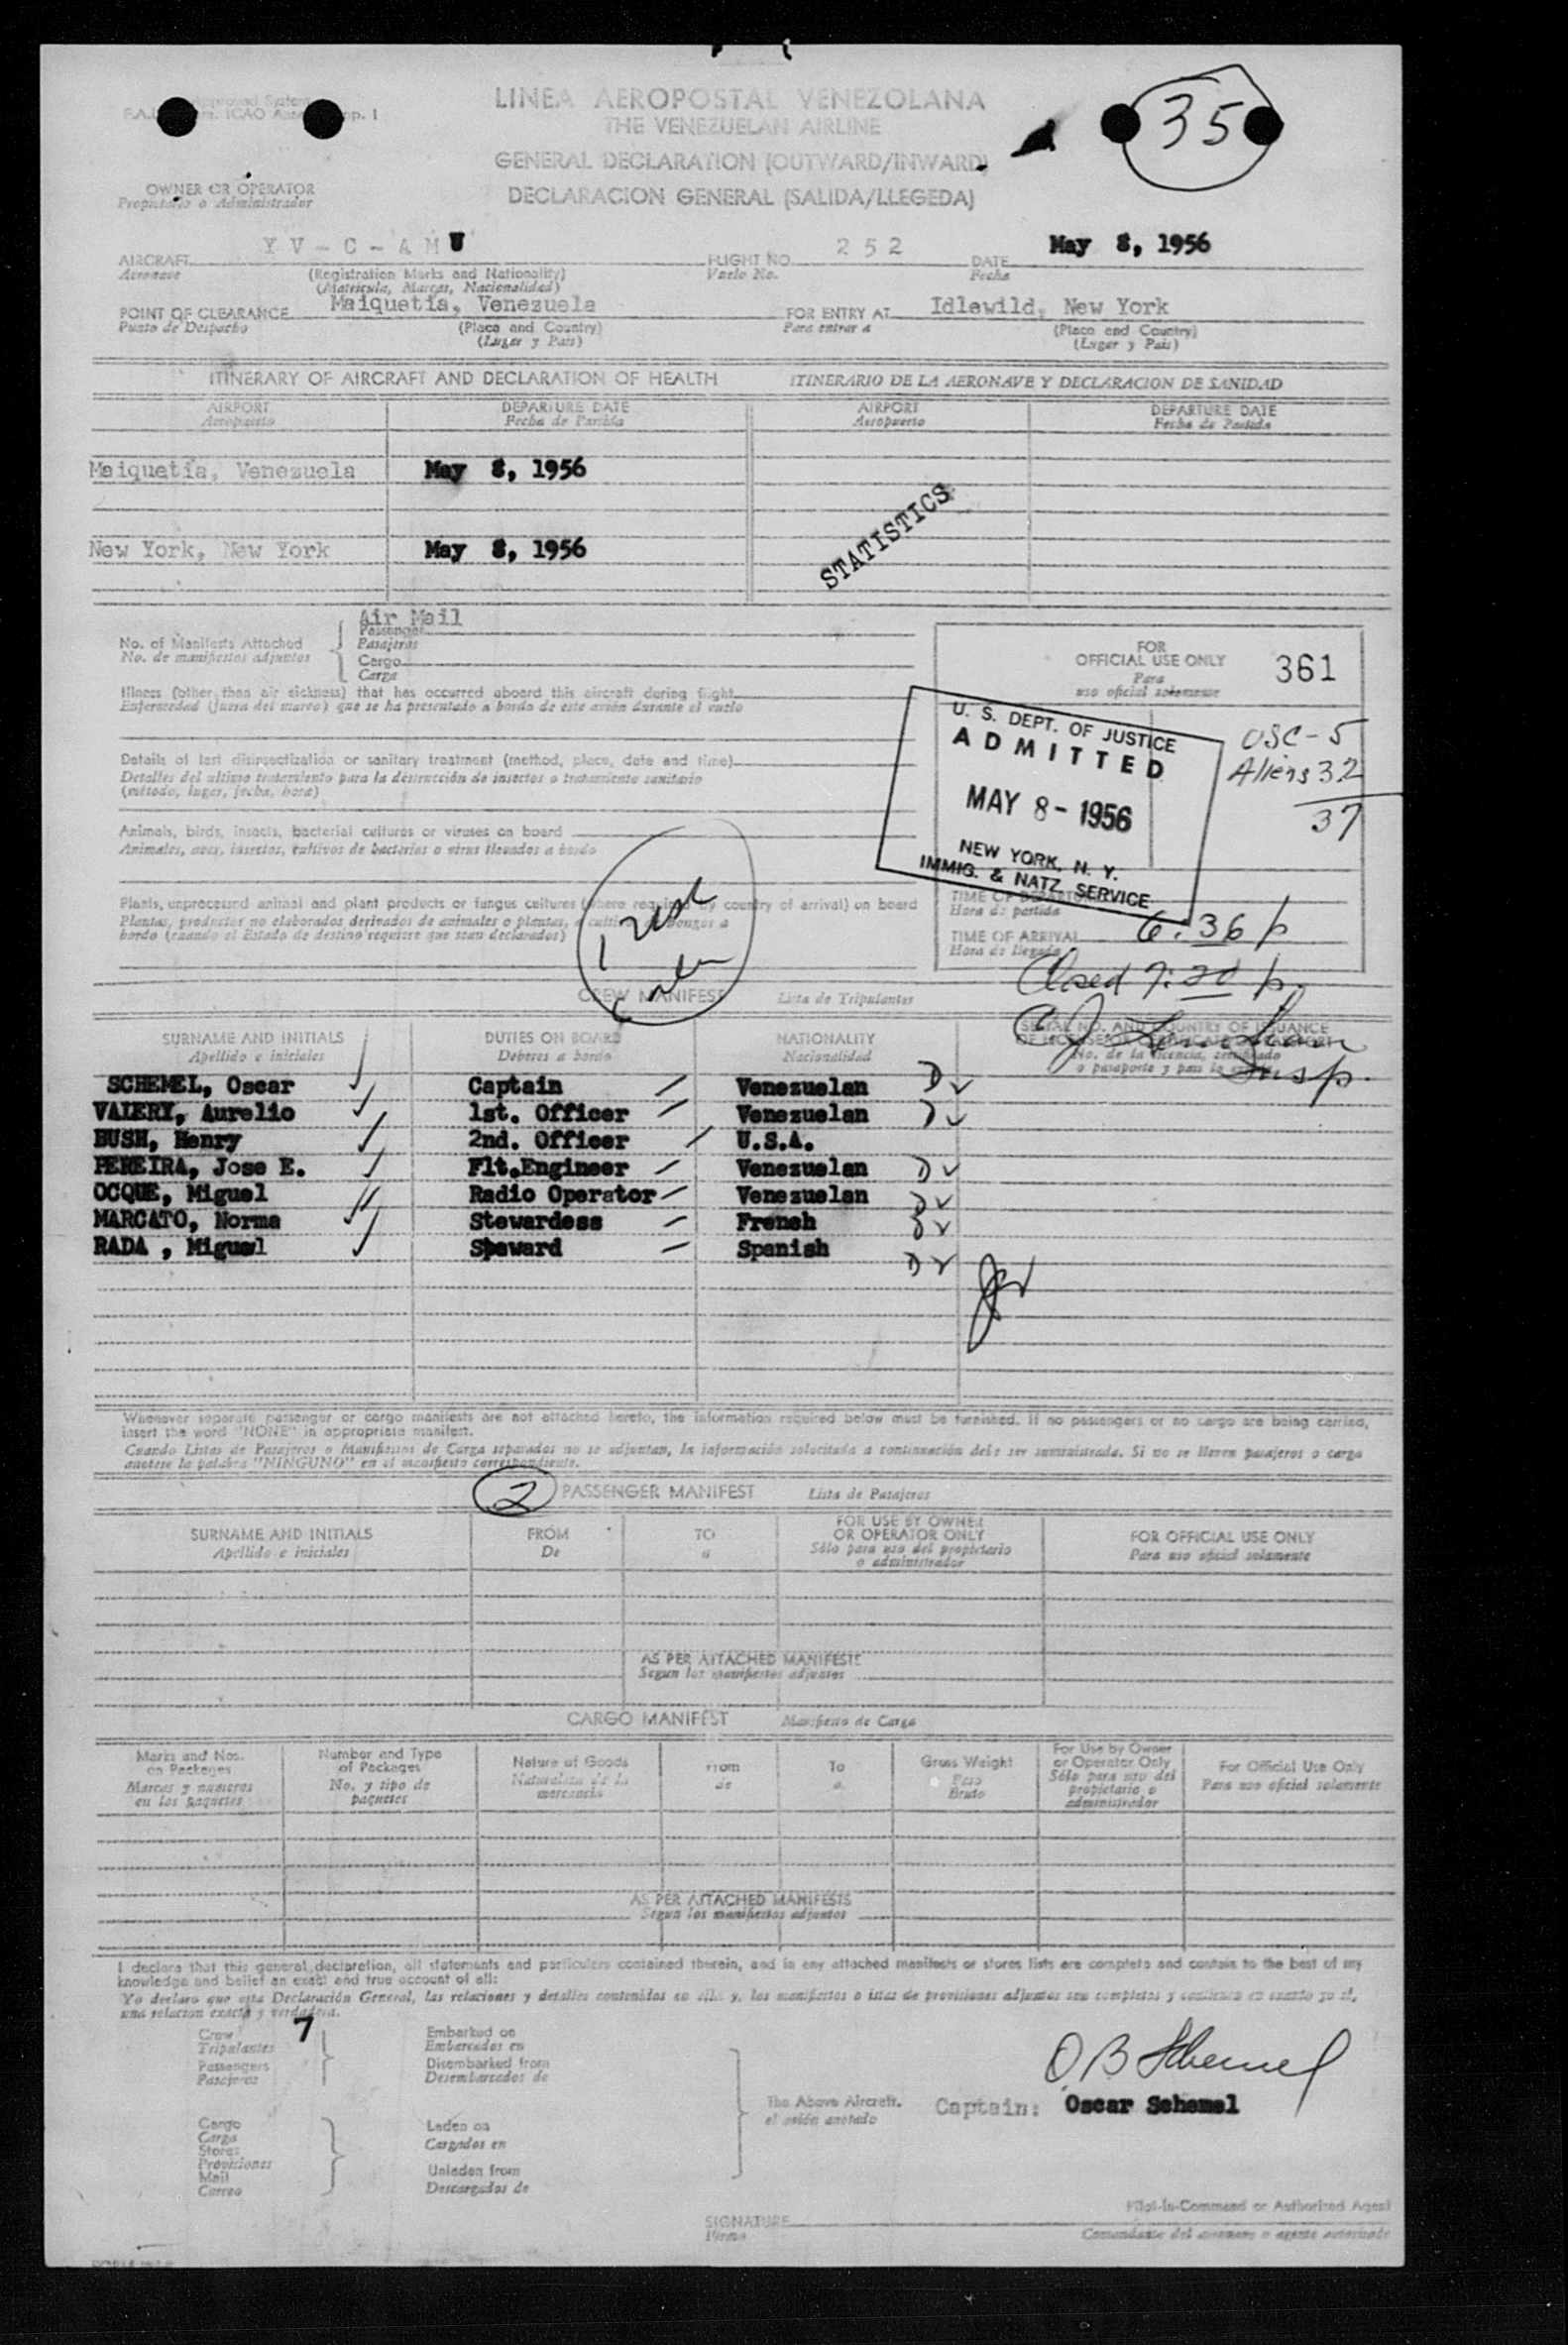 LINEA AEROPOSTAL VENEZOLANA
THE VENEZUELAN AIRLINE
GENERAL DECLARATION (OUTWARD/INWARD)
DECLARACION GENERAL (SALIDA/LLEGEDA)
35
OWNER OR OPERATOR
Propietario o Administrador
AIRCRAFT YV-C-AMU FLIGHT NO 252 DATE May 8, 1956
Aeronave (Registration Marks and Nationality) Vuelo No. Fecha
(Matricula, Marcas, Nacionalidad)
POINT OF CLEARANCE Maiquetia, Venezuela FOR ENTRY AT Idlewild, New York
Punto de Despacho (Place and Country) Para entrar a (Place and Country)
(Lugar y Pais) (Lugar y Pais)
ITINERARY OF AIRCRAFT AND DECLARATION OF HEALTH ITINERARIO DE LA AERONAVE Y DECLARACION DE SANIDAD
AIRPORT DEPARTURE DATE AIRPORT DEPARTURE DATE
Aeropuerto Fecha de Partida Aeropuerto Fecha de Partida
Maiquetia, Venezuela May 8, 1956
New York, New York May 8, 1956
STATISTICS
Air Mail
No. of Manifests Attached Passenger
No. de manifiestos adjuntos Pasajeros
Cargo
Carga
FOR
OFFICIAL USE ONLY 361
Para
uso oficial solamente
Illness (other than air sickness) that has occurred aboard this aircraft during flight
Enfermedad (fuera del mareo) que se ha presentado a bordo de este avión durante el vuelo
U. S. DEPT. OF JUSTICE
ADMITTED
MAY 8 - 1956
NEW YORK, N. Y.
IMMIG. & NATZ. SERVICE
USC-5
Aliens 32
37
Details of last disinsectization or sanitary treatment (method, place, date and time)
Detalles del ultimo tratamiento para la destrucción de insectos o tratamiento sanitario
(método, lugar, fecha, hora)
Animals, birds, insects, bacterial cultures or viruses on board
Animales, aves, insectos, cultivos de bacterias o virus llevados a bordo
Plants, unprocessed animal and plant products or fungus cultures (where required by country of arrival) on board
Plantas, productos no elaborados derivados de animales o plantas, o cultivos de hongos a
bordo (cuando el Estado de destino requiere que sean declarados)
TIME OF DEPARTURE
Hora de partida
TIME OF ARRIVAL 6:36 p
Hora de llegada
Closed 7:20 p.
Insp.
CREW MANIFEST Lista de Tripulantes
SURNAME AND INITIALS DUTIES ON BOARD NATIONALITY SERIAL NO. AND COUNTRY OF ISSUANCE
Apellido e iniciales Deberes a bordo Nacionalidad No. de la licencia, certificado
o pasaporte y pais
SCHEMEL, Oscar Captain Venezuelan D
VALERY, Aurelio 1st. Officer Venezuelan D
BUSH, Henry 2nd. Officer U.S.A.
PEREIRA, Jose E. Flt.Engineer Venezuelan D
OCQUE, Miguel Radio Operator Venezuelan D
MARCATO, Norma Stewardess French D
RADA , Miguel Steward Spanish D
Whenever separate passenger or cargo manifests are not attached hereto, the information required below must be furnished. If no passengers or no cargo are being carried,
insert the word "NONE" in appropriate manifest.
Cuando Listas de Pasajeros o Manifiestos de Carga separados no se adjuntan, la información solicitada a continuación debe ser suministrada. Si no se lleven pasajeros o carga
anotese la palabra "NINGUNO" en el manifiesto correspondiente.
2 PASSENGER MANIFEST Lista de Pasajeros
SURNAME AND INITIALS FROM TO FOR USE BY OWNER OR OPERATOR ONLY FOR OFFICIAL USE ONLY
Apellido e iniciales De a Sólo para uso del propietario o administrador Para uso oficial solamente
AS PER ATTACHED MANIFESTS
Segun los manifiestos adjuntos
CARGO MANIFEST Manifiesto de Carga
Marks and Nos. on Packages Number and Type of Packages Nature of Goods From To Gross Weight For Use by Owner or Operator Only For Official Use Only
Marcas y numeros en los paquetes No. y tipo de paquetes Naturaleza de la mercancia de a Peso Bruto Sólo para uso del propietario o administrador Para uso oficial solamente
AS PER ATTACHED MANIFESTS
Segun los manifiestos adjuntos
I declare that this general declaration, all statements and particulars contained therein, and in any attached manifests or stores lists are complete and contain to the best of my
knowledge and belief an exact and true account of all:
Yo declaro que esta Declaración General, las relaciones y detalles contenidos en ella y, los manifiestos o listas de provisiones adjuntos son completos y contienen en cuanto yo sé,
una relacion exacta y verdadera.
Crew 7 Embarked on
Tripulantes Embarcados en
Passengers Disembarked from
Pasajeros Desembarcados de
O B Schemel
The Above Aircraft. Captain: Oscar Schemel
el avión anotado
Cargo Laden on
Carga Cargados en
Stores
Provisiones Unladen from
Mail Descargados de
Correo
Pilot-in-Command or Authorized Agent
SIGNATURE
Firma Comandante del aeronave o agente autorizado